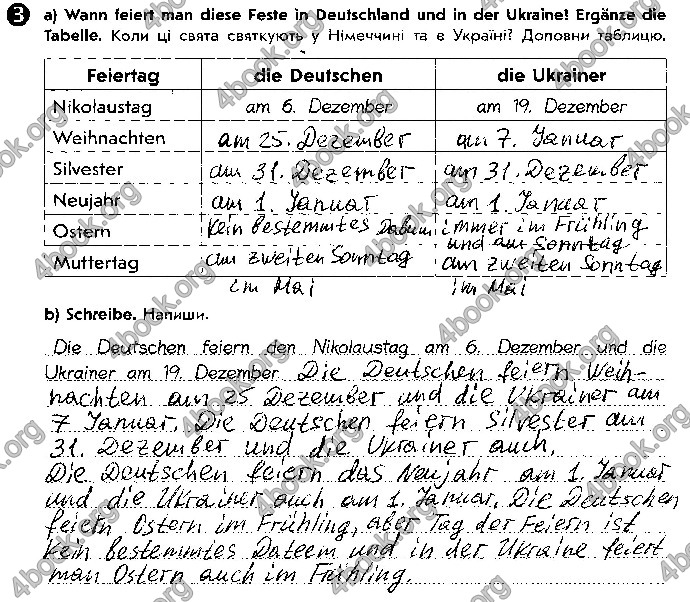 3 a) Wann feiert man diese Feste in Deutschland und in der Ukraine? Ergänze die
Tabelle. Коли ці свята святкують у Німеччині та в Україні? Доповни таблицю.
Feiertag die Deutschen die Ukrainer
Nikolaustag am 6. Dezember am 19. Dezember
Weihnachten am 25. Dezember am 7. Januar
Silvester am 31. Dezember am 31. Dezember
Neujahr am 1. Januar am 1. Januar
Ostern Kein bestemmtes Datum immer im Frühling
und am Sonntag
Muttertag am zweiten Sonntag am zweiten Sonntag
im Mai im Mai
b) Schreibe. Напиши.
Die Deutschen feiern den Nikolaustag am 6. Dezember und die
Ukrainer am 19. Dezember. Die Deutschen feiern Weih-
nachten am 25 Dezember und die Ukrainer am
7 Januar. Die Deutschen feiern Silvester am
31. Dezember und die Ukrainer auch.
Die Deutschen feiern das Neujahr am 1. Januar
und die Ukrainer auch am 1. Januar. Die Deutschen
feiern Ostern im Frühling, aber Tag der Feiern ist
kein bestemmtes Dateem und in der Ukraine feiert
man Ostern auch im Frühling.
4book.org